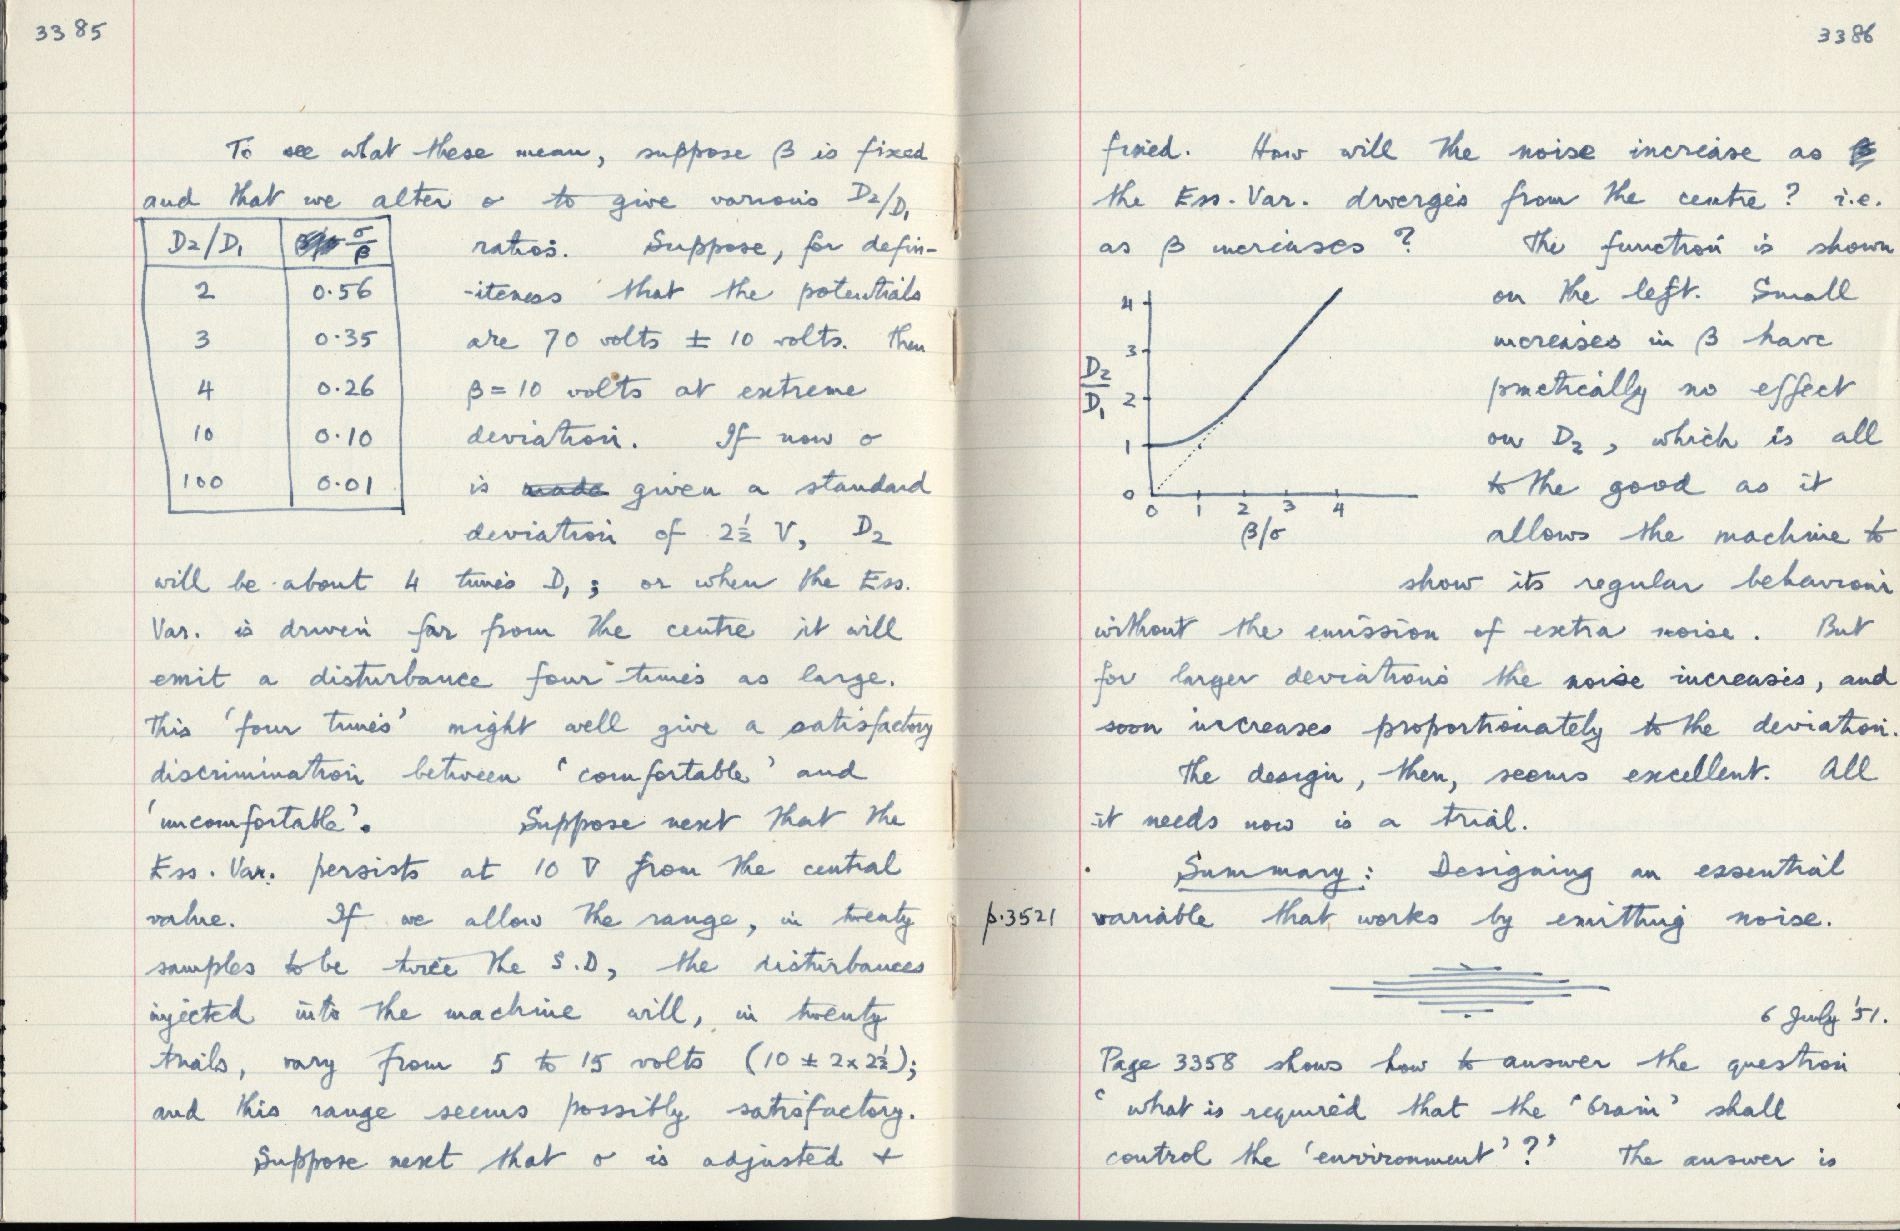 3385
To see what these mean, suppose β is fixed
and that we alter σ to give various D2/D1
D2/D1 σ/β
2 0·56
3 0·35
4 0·26
10 0·10
100 0·01
ratios. Suppose, for defin-
-iteness that the potentials
are 70 volts ± 10 volts. Then
β = 10 volts at extreme
deviation. If now σ
is made given a standard
deviation of 2½ V, D2
will be about 4 times D1; or when the Ess.
Var. is driven far from the centre it will
emit a disturbance four times as large.
This 'four times' might well give a satisfactory
discrimination between 'comfortable' and
'uncomfortable'. Suppose next that the
Ess. Var. persists at 10 V from the central
value. If we allow the range, in twenty
samples to be twice the S.D, the disturbances
injected into the machine will, in twenty
trials, vary from 5 to 15 volts (10 ± 2 x 2½);
and this range seems possibly satisfactory.
Suppose next that σ is adjusted +
3386
fixed. How will the noise increase as
the Ess. Var. diverges from the centre? i.e.
as β increases? The function is shown
4
3
2
1
0
D2/D1
0 1 2 3 4
β/σ
on the left. Small
increases in β have
practically no effect
on D2, which is all
to the good as it
allows the machine to
show its regular behaviour
without the emission of extra noise. But
for larger deviations the noise increases, and
soon increases proportionately to the deviation.
The design, then, seems excellent. All
it needs now is a trial.
Summary: Designing an essential
p.3521 variable that works by emitting noise.
6 July '51.
Page 3358 shows how to answer the question
'what is required that the 'brain' shall
control the 'environment'?' The answer is